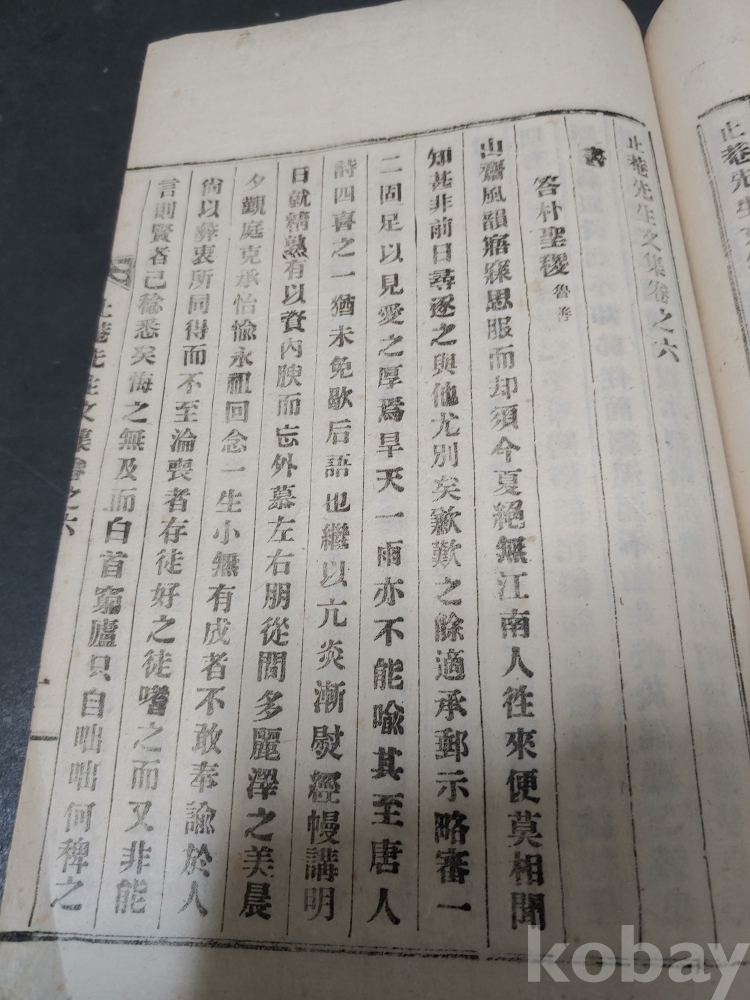 止菴先生文集卷之六
書
答朴聖稷 魯洊
山齋風韻寤寐思服而却須今夏絕無江南人往來便莫相聞
知甚非前日尋逐之與他尤別矣歉歎之餘適承郵示略審一
二固足以見愛之厚焉旱天一雨亦不能喩其至唐人
詩四喜之一猶未免歇后語也繼以亢炎漸熨經幔講明
日就精熟有以資內腴而忘外慕左右朋從間多麗澤之美晨
夕覲庭克承怡愉永祖回念一生小無有成者不敢奉諭於人
尙以彛衷所同得而不至淪喪者存徒好之徒嗜之而又非能
言則賢者已稔悉矣悔之無及而白首窮廬只自咄咄何稗之
止菴先生文集卷之六
一
止菴先生文
kobay